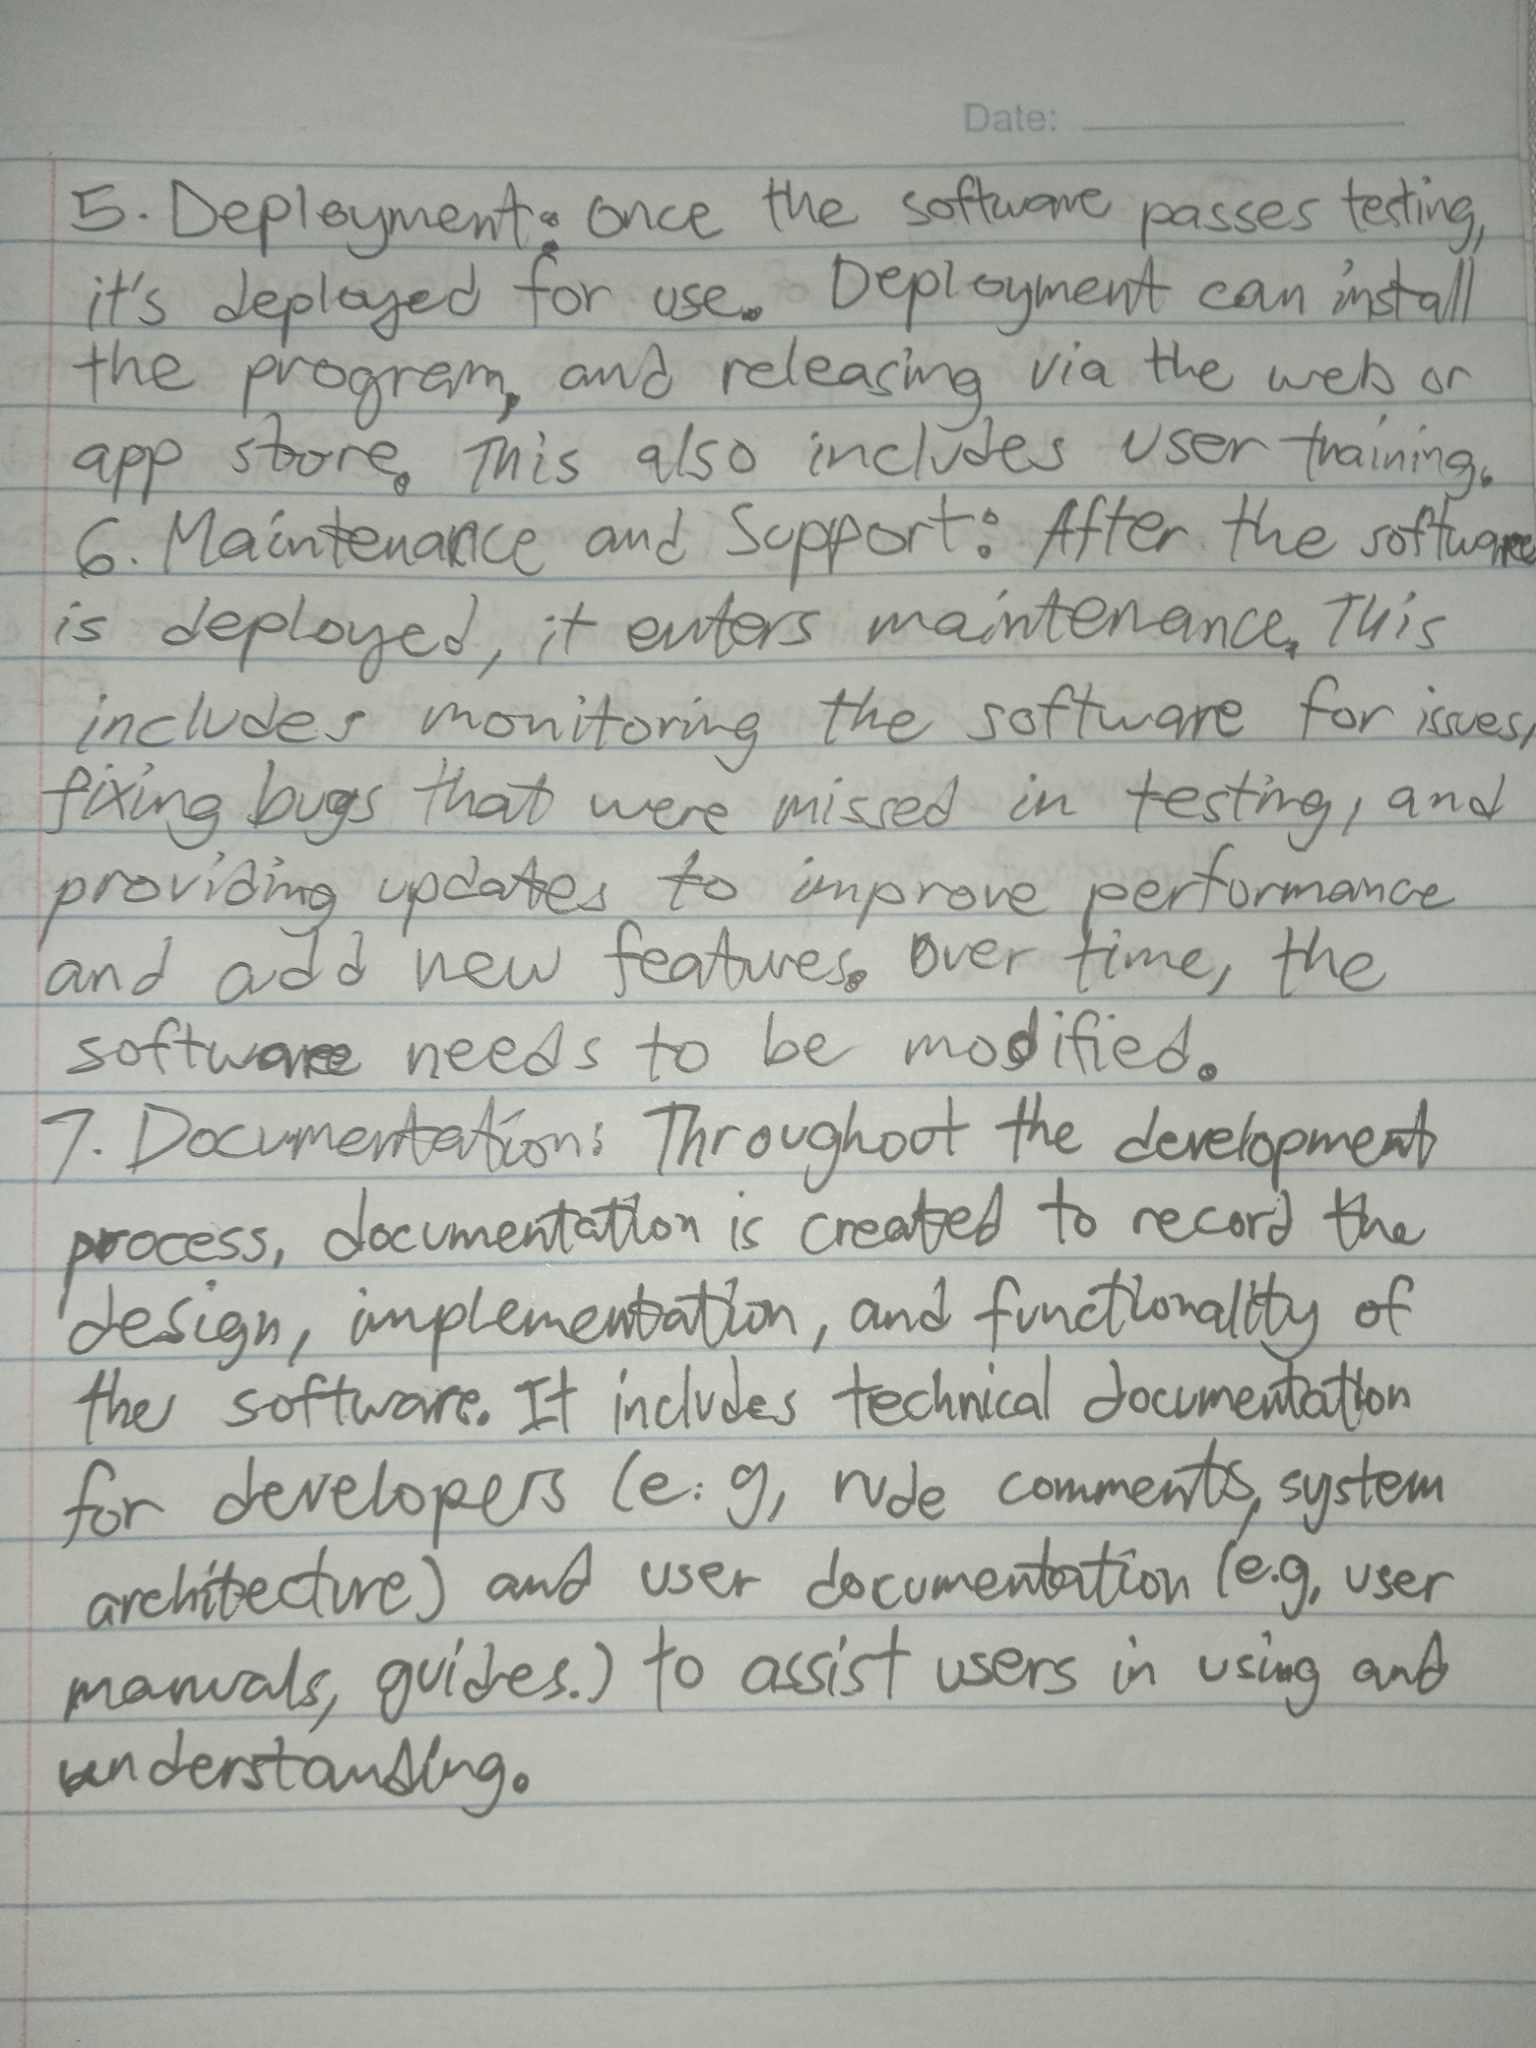 Date:
5. Deployment: once the software passes testing,
it's deployed for use. Deployment can install
the program, and releasing via the web or
app store. This also includes user training.
6. Maintenance and Support: After the software
is deployed, it enters maintenance. This
includes monitoring the software for issues,
fixing bugs that were missed in testing, and
providing updates to improve performance
and add new features. Over time, the
software needs to be modified.
7. Documentation: Throughout the development
process, documentation is created to record the
design, implementation, and functionality of
the software. It includes technical documentation
for developers (e.g, rude comments, system
architecture) and user documentation (e.g, user
manuals, guides.) to assist users in using and
understanding.